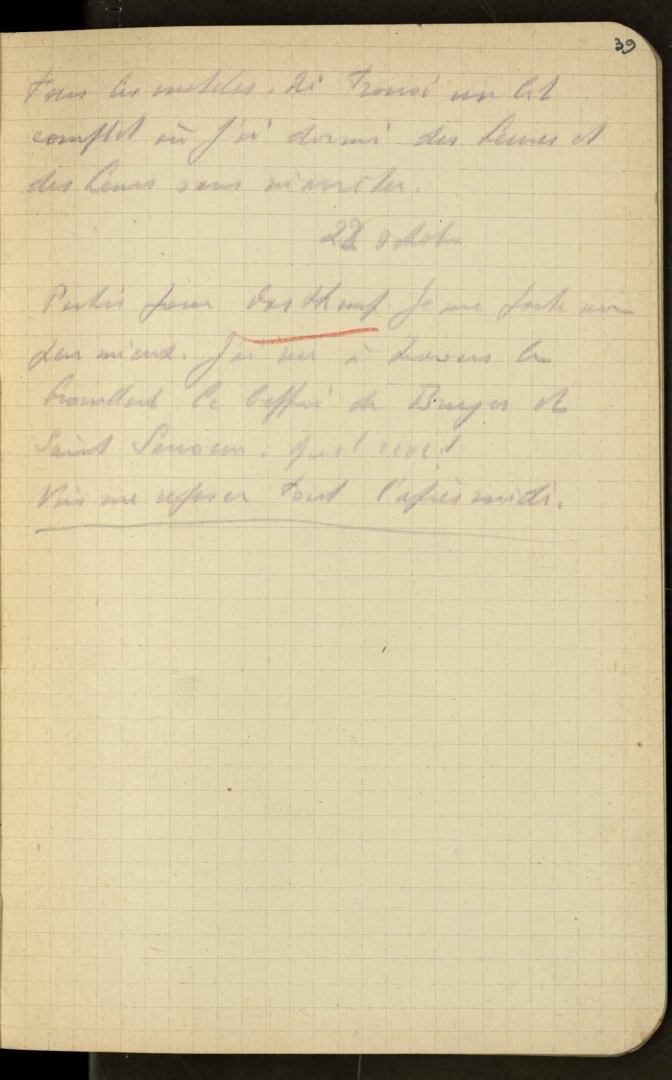 39
Tous les meubles. Ai trouvé un lit
complet où j'ai dormi des heures et
des heures sans m'arrêter.
28 octobre
Partis pour Oostkamp. Je me porte un
peu mieux. J'ai vu à travers le
brouillard le beffroi de Bruges et
Saint Sauveur. quel rêve!
Vais me reposer tout l'après midi.